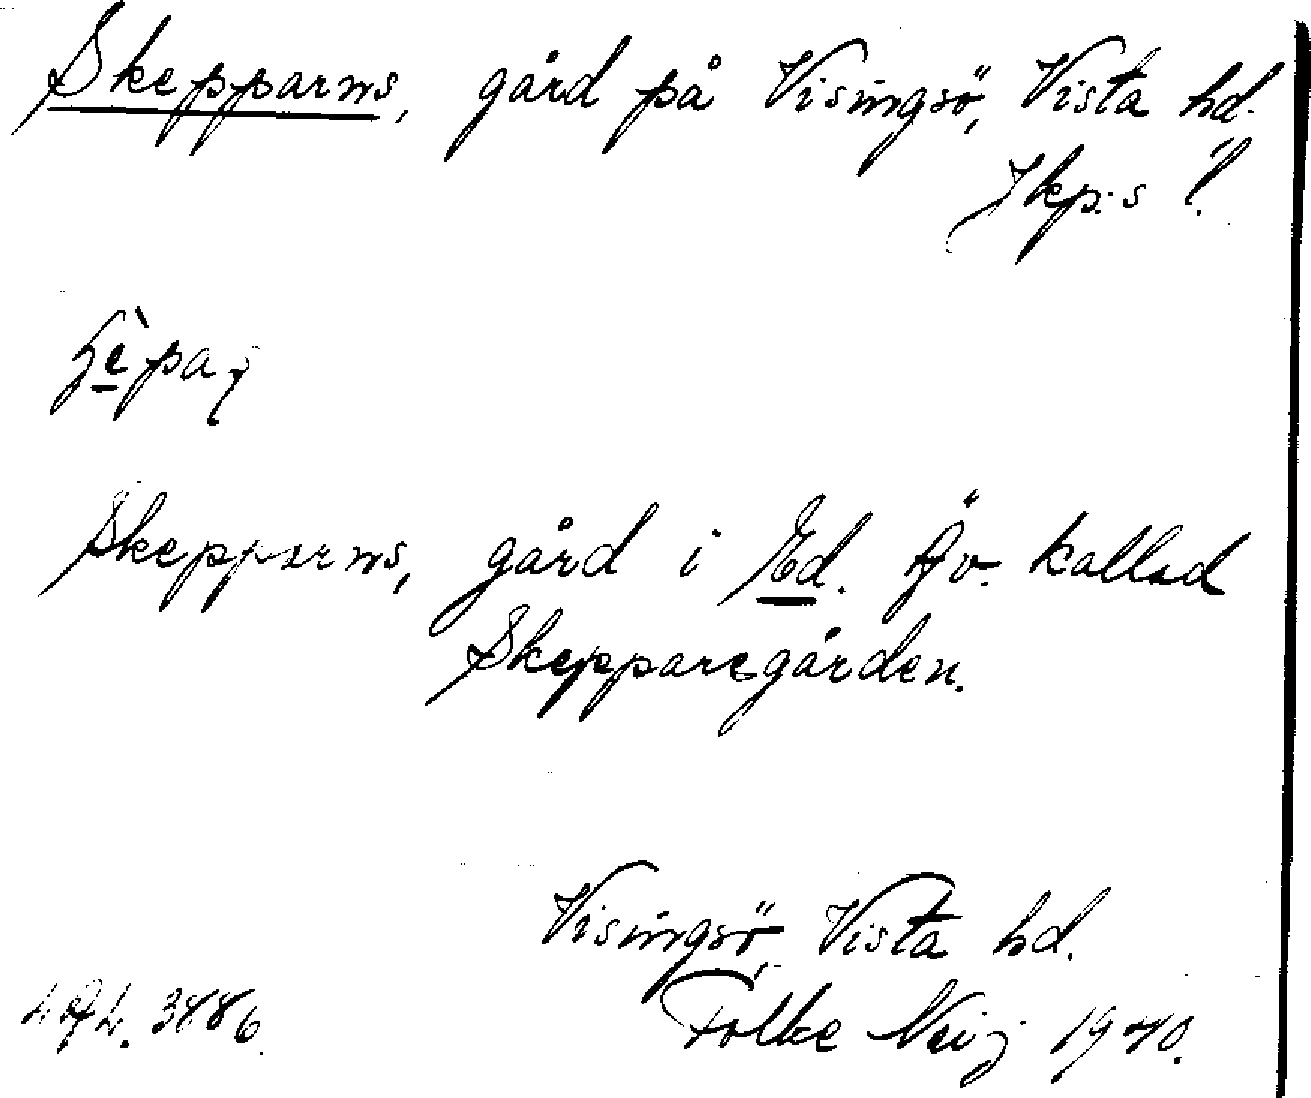 Skepparns, gård på Visingsö, Vista hd.
Jkp:s l.
Skepparns, gård i Ed. Äv. kallad
Skepparegården.
Visingsö, Vista hd.
3886. Folke Neij 1940.